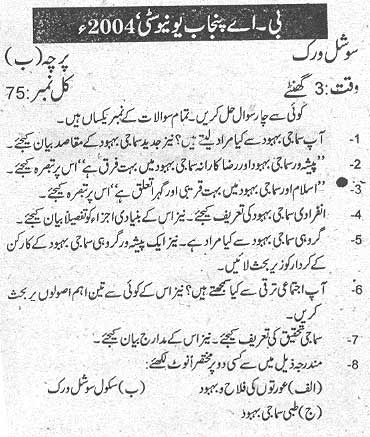 بی۔ اے پنجاب یونیورسٹی، 2004ء
سوشل ورک پرچہ (ب)
وقت: 3 گھنٹے کل نمبر: 75
کوئی سے چار سوال حل کریں۔ تمام سوالات کے نمبر یکساں ہیں۔
1- آپ سماجی بہبود سے کیا مراد لیتے ہیں؟ نیز جدید سماجی بہبود کے مقاصد بیان کیجئے۔
2- ”پیشہ ور سماجی بہبود اور رضا کارانہ سماجی بہبود میں بہت فرق ہے“ اس پر تبصرہ کیجئے۔
3- ”اسلام اور سماجی بہبود میں بہت قریبی اور گہرا تعلق ہے“ اس پر تبصرہ کیجئے۔
4- انفرادی سماجی بہبود کی تعریف کیجئے۔ نیز اس کے بنیادی اجزاء کو تفصیلاً بیان کیجئے۔
5- گروہی سماجی بہبود سے کیا مراد ہے۔ نیز ایک پیشہ ور گروہی سماجی بہبود کے کارکن
کے کردار کو زیر بحث لائیں۔
6- آپ اجتماعی ترقی سے کیا سمجھتے ہیں؟ نیز اس کے کوئی سے تین اہم اصولوں پر بحث
کریں۔
7- سماجی تحقیق کی تعریف کیجئے۔ نیز اس کے مدارج بیان کیجئے۔
8- مندرجہ ذیل میں سے کسی دو پر مختصراً نوٹ لکھئے:
(الف) عورتوں کی فلاح و بہبود (ب) سکول سوشل ورک
(ج) طبی سماجی بہبود